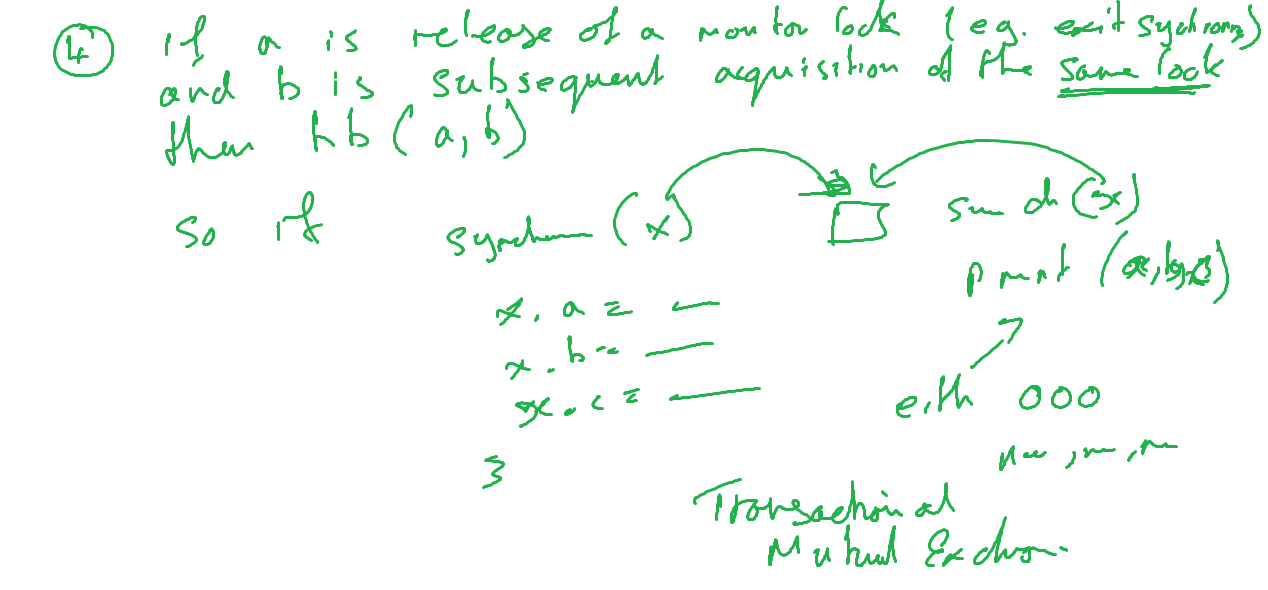 ④ if a is release of a monitor lock (eg. exit sychron)
and b is subsequent acquisition of the same lock
then hb(a,b)
so if synchron (x)
(x)
print (a,b,c)
x.a =
x.b =
x.c =
eith 000
}
Transactional
Mutual Exclus